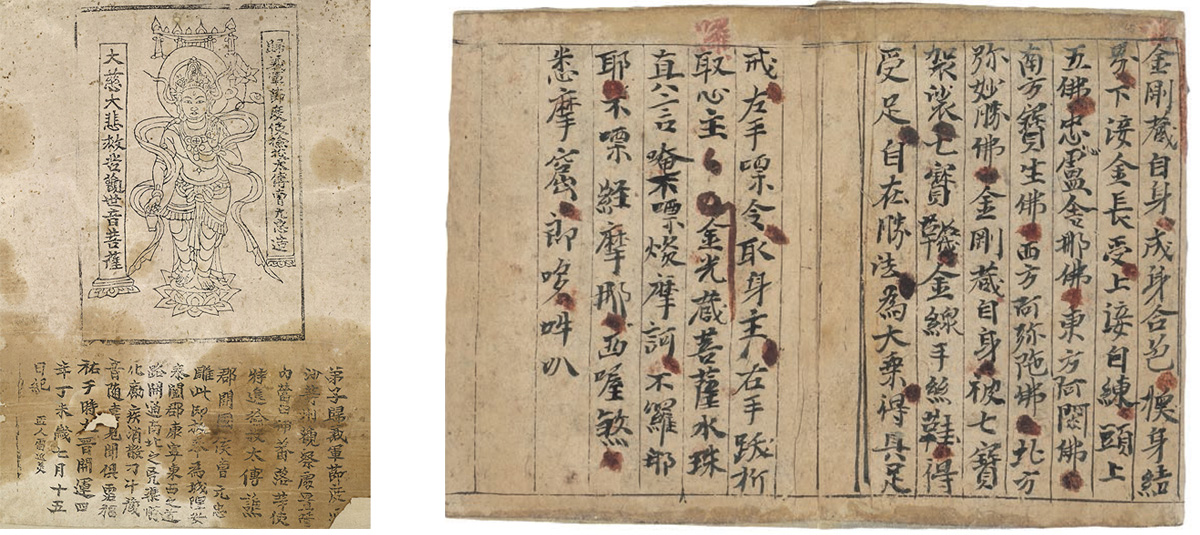 歸義軍節度使檢校太傅曹元忠造
大慈大悲救苦觀世音菩薩
弟子歸義軍節度
沙等州觀察處置
內營田押蕃落等使
特進檢校太傅譙
郡開國侯曹元忠
雕此印板奉為城隍安
泰闔郡康寧東西之道
路開通南北之兇渠順
化癘疾消散刁斗藏
音隨喜見聞俱霑福
祐于時大晉開運四
年丁未歲七月十五
日紀 匠人雷延美
金剛藏自身成身合色煥身結
界下接金長受上接白練頭上
五佛忠盧舍那佛東方阿閦佛
南方寶生佛西方阿弥陀佛北方
弥妙勝佛金剛藏自身被七寶
袈裟七寶金線手絲鞋得
受足自在勝法為大乘得具足
戒左手㗚令取身主右手跋折
取心主金光藏菩薩水珠
真言唵不㗚焰摩訶不羅耶
耶不㗚經摩耶西喔煞
悉摩窟郎吽叭